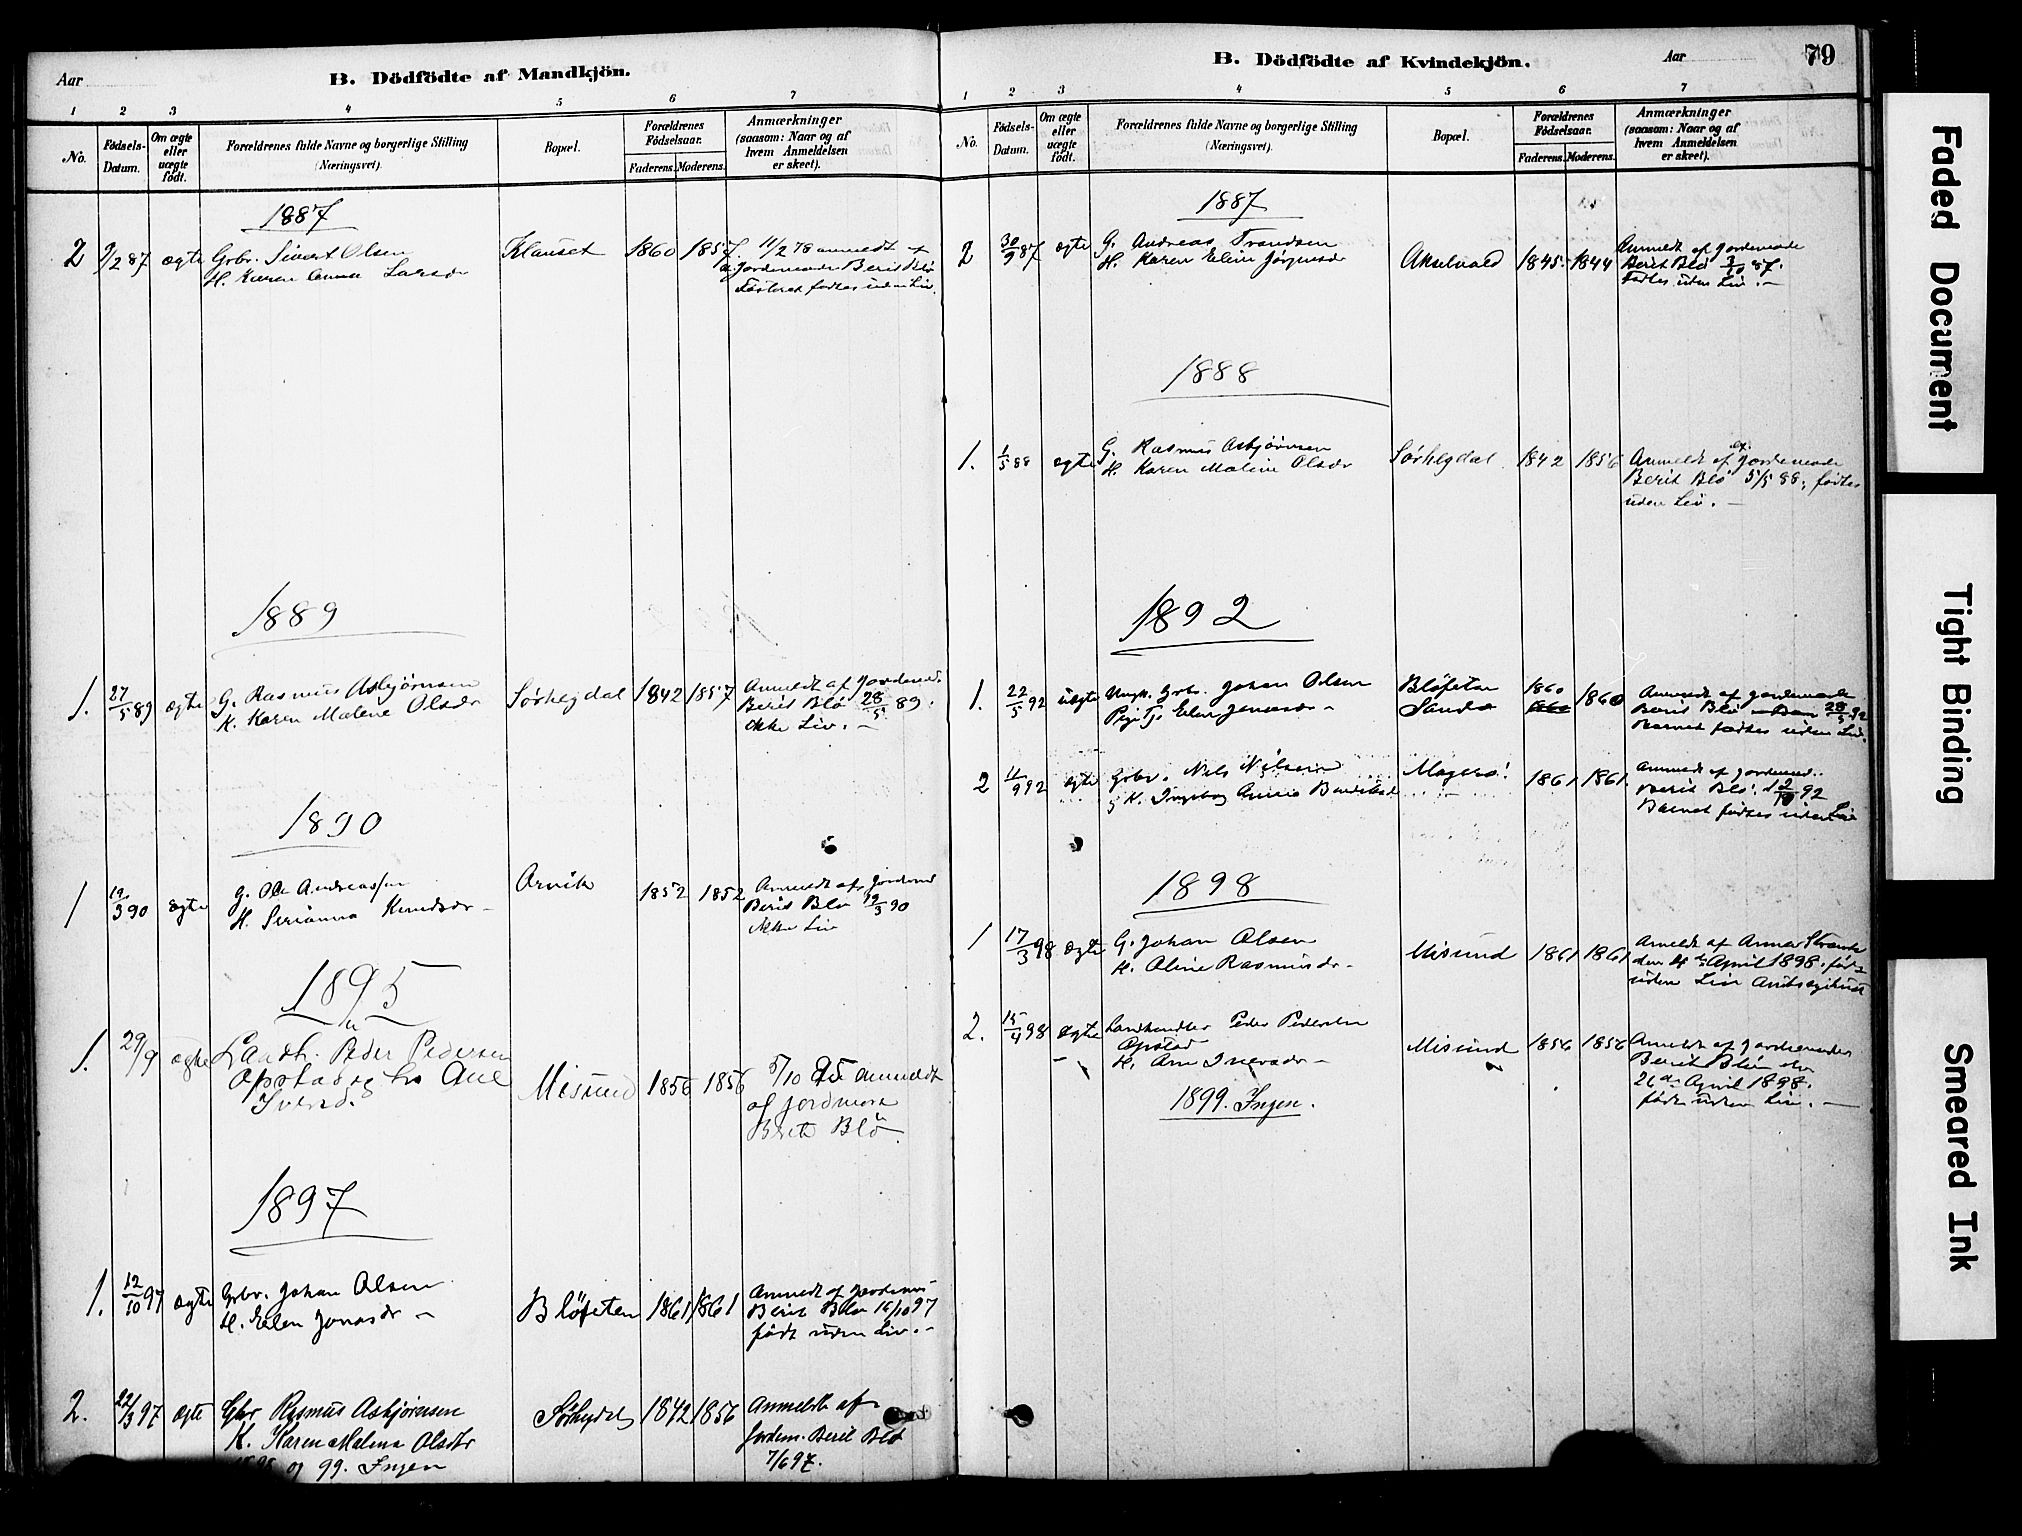 Aar
B. Dödfödte af Mandkjön.
1 2 3 4 5 6 7
No.
Födsels-Datum.
Om ægte eller uægte födt.
Forældrenes fulde Navne og borgerlige Stilling
(Næringsvei).
Bopæl.
Forældrenes Fødselsaar.
Faderens. Moderens.
Anmærkninger
(saasom: Naar og af
hvem Anmeldelsen
er skeet).
1887
2 9/2 87 ægte Grbr. Sivert Olsen Klauset 1860 1857 11/2 78 anmeldt
H. Karen Anna Larsdr Jordemoder Berit Blø
Fosteret fødtes uden Liv.
1889
1. 27/5 89 ægte G. Rasmus Asbjørnsen Sørhegdal 1842 1857 Anmeldt af Jordemod.
K. Karen Malene Olsdr Berit Blø 28/5 89.
ikke Liv. —
1890
1 19/3 90 ægte G. Ole Andreassen Arvik 1852 1852 Anmeldt af Jordemod
H. Serianna Knudsdr — Berit Blø 19/3 90
ikke Liv
1895
1. 29/9 ægte Landh. Peder Pedersen
Opstad og Ane Misund 1856 1856 5/10 95 anmeldt
Iversd. af Jordmora
Berit Blø.
1897
1. 12/10 97 ægte Grbr. Johan Olsen Bløfeten 1861 1861 Anmeldt af Jordemor
H. Elen Jonasdr — Berit Blø 16/10 97
født uden Liv. —
2. 22/3 97 ægte Gbr Rasmus Asbjørnsen Sørhegdal 1842 1856 Anmeldt af
K. Karen Malena Olsdtr Jordem. Berit Blø
og 99. Ingen 7/6 97.
B. Dödfödte af Kvindekjön.
Aar
79
1 2 3 4 5 6 7
No.
Födsels-Datum.
Om ægte eller uægte födt.
Forældrenes fulde Navne og borgerlige Stilling
(Næringsvei).
Bopæl.
Forældrenes Fødselsaar.
Faderens. Moderens.
Anmærkninger
(saasom: Naar og af
hvem Anmeldelsen
er skeet).
1887
2 30/9 87 ægte G. Andreas Trondsen Akselvold 1845 1844 Anmeldt af Jordemoder
H. Karen Elin Jørgensdr Berit Blø 3/10 87.
Fødtes uden Liv. —
1888
1. 1/5 88 ægte G. Rasmus Asbjørnsen Sørhegdal 1842 1856 Anmeldt af Jordemoder
H. Karen Maline Olsdr Berit Blø 5/5 88, fødtes
uden Liv. —
1892
1. 22/5 92 uægte Ungk. Grbr. Johan Olsen Bløfeten 1860 1860 Anmeldt af Jordemoder
Pige Tj. Elen Jonasdr — Sandø Berit Blø 28/5 92
Barnet fødtes uden Liv.
2 11/9 92 ægte Grbr. Nils Nilsen Magerø 1861 1861 Anmeldt af Jordemod.
K. Ingeborg Berit Blø 2/10 92
Barnet fødtes uden Liv
1898
1 17/3 98 ægte G. Johan Olsen Misund 1861 1861 Anmeldt af Anna
H. Oline Rasmusdr — den 4de April 1898. født
uden Liv
2. 15/4 98 ægte Landhandler Peder Pedersen Misund 1856 1856 Anmeldt af Jordemoder
Opstad Berit Blø den
H. Ane Iversdr — 26de April 1898.
født uden Liv. —
1899. Ingen.
Faded Document
Tight Binding
Smeared Ink